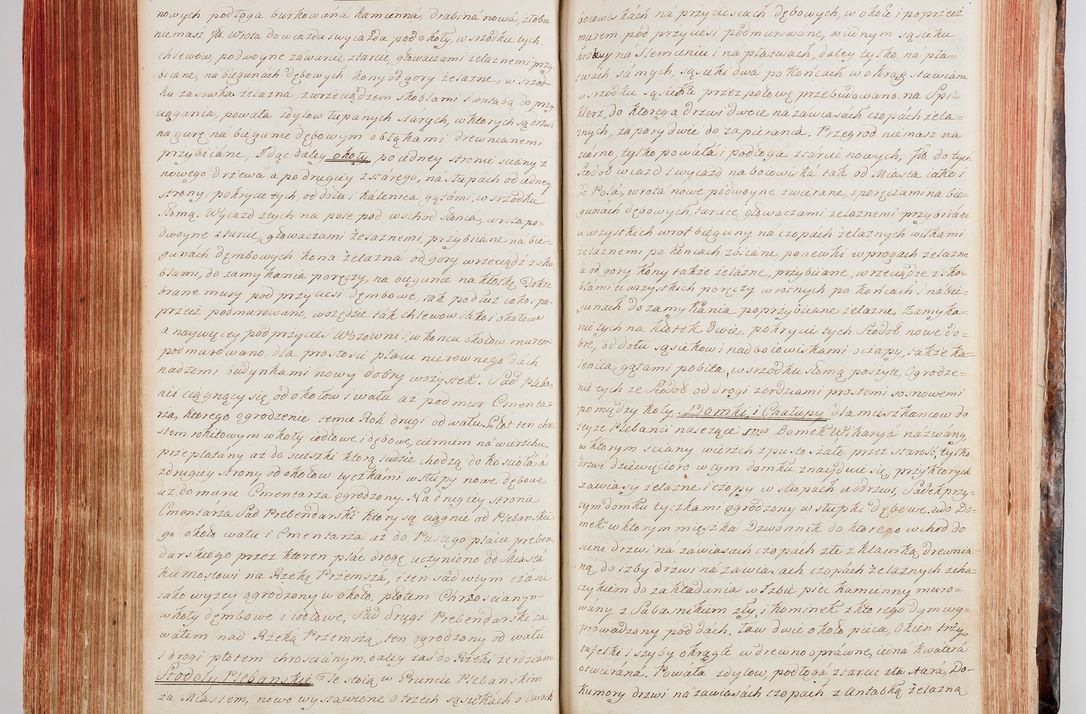 nowych podłoga burkowána kamienná, drabiná nowa, złobu
niemasz Jtt wrotá do wiázdu y wyiázdu pod okoły, w srzodku tych
chlewow, podwoyne záwarcie ztarcic, głowaczámi żelaznemi przy
biiáne, ná biegunách dębowych, kony od gory żelázne, w srzod-
ku zásowká żelázna z wrzeciądzem skoblámi i antabą do przy
ciągánia, powáłá z dylow łupanych stárych, w ktorych są drzwi
ná gurę ná biegunie dębowym obłąkámi drewnianemi
przybiiáne, Idąc daley okoły, po iedney stronie sciány z
nowego drzewá á po drugiey z stárego, ná słupách od iedney
strony pokrycie tych, od dołu i kálenicá gątámi, w srzodku
słomą. Wyiázd z tych ná pole pod wschod słońca, wrotá po-
dwoyne z tarcic, głowaczámi żelaznemi, przybiiáne ná bie-
gunách dembowych koná żelázna od gory wrzeciądź z sko-
blámi, do zámykánia poręczy, ná biegunie ná kłotkę. Tákże
bráne mury pod przyciesi dembowe, ták podłuż iáko i po-
przeż podmurowáne, wszędzie ták chlewow iáko i okołow
á naywięcey pod przycieś Wozowni, w końcu okołow murem
podmurowano, dla prostości plácu nierownego Dách
nád temi budynkámi nowy dobry wszystek. Sád Pleba-
nii ciągnący się, od okołow i wáłu áż pod mur Cmentá-
rza, ktorego ogrodzenie temu Rok drugi od wáłu Płot ten chro-
stem rokitowym w koły iodłowe i dębowe, cierniem ná wierzchu
przeplátány áż do scieszki ktorą ludzie chodzą do kościołá á
z drugiey strony od okołow tyczkámi w słupy nowe dębowe
áż do muru Cmentarzá ogrodzony. Ná drugiey stronie
Cmentarzá Sád Prebendarski ktory się ciągnie od Plebańskie-
go około wáłu i Cmentarzá áż do Pustego plácu preben-
darskiego przez ktoren plác drogę uczyniono do Miástá
ku Mostowi ná Rzekę Przemszá, i ten sád w tym czásie
iáko wyżey ogrodzony w około, płotem Chrościánym
w koły dembowe i iodłowe, Sád drugi Prebendárski zá
wáłem nád Rzeką Przemszą, ten ogrodzony od wáłu
i drogi płotem chrościánym, dáley záś do Rzeki żerdziám
Stodoły Plebańskie. Te stoią w Gruncie Plebańskim
zá Miástem, nowo wystáwione o trzech sąsiekách o dwoch
boiowiskách ná przyciesiách dębowych, w około i poprzeż
murem pod przyciesi podmurowáne, w iednym sąsieku
ná słemieniu i ná płatwách, dáley tylko ná płá-
twách sámych, sąsieki dwá po końcách w okrąg stáwiáne
w srzodku sąsieká przez połowę przebudowano, ná Spi-
klerz, do ktorego drzwi dwoie ná záwiásách czopách żelá-
znych, zápory dwie do zápieránia. Przegrod niemász ná
záśno, tylko powáłá i podłogá z tarcic nowych, Jtt do tych
Stodoł wiázd i wyiázd ná boiowiská ták od Miástá iáko i
od Polá, wrotá nowe podwoyne zwieráne, z poręczámi ná bie-
gunách dębowych, tarcice głowaczámi żelaznemi przybiiáne
á wszystkich wrot bieguny ná czopách żeláznych w iskámi
żeláznemi po końcách zbiiáne, ponewki w progách żelázne
á od gory kony tákże żelázne, przybiiáne, wrzeciądze z sko-
blámi u wszystkich poręczy w rożnych po końcách i ná bie-
gunách do zámykánia poprzybiiáne żelázne, Zámyká-
nie tych ná kłotek dwie, pokrycie tych Stodoł nowe do-
bre, od dołu sąsiekow i nád boiowiskámi oczápy, tákże ká-
lenicá, gątámi pobitá, w srzodku słomą poszyte, Ogrodze-
nie tych ze Stodoł od drogi żerdziámi prostemi sosnowemi
pomiędzy koły. Domki i Chałupy dla mieszkancow do
teyże Plebánii náleżące. 1mo Domek Wikaryá názwány,
w ktorym sciány wierzch z pusto-záłe przez stárość, tylko
drzwi dziewięcioro w tym domku znáyduie się, przy ktorych
záwiásy żelázne i czopy w słupách u drzwi, Sádek przy-
tym domku tyczkámi ogrodzony w słupki dębowe. 2do Do-
mek w ktorym mieszka Dzwonnik do ktorego wchod do
sieni drzwi ná záwiásách czopách złe z klámką drewniá-
ną, do izby drzwi ná záwiásách czopách żeláznych z há-
czykiem do zákłádánia w Izbie piec kámienny muro-
wány z Sabáśnikiem zły, i kominek z ktorego dym wy-
prowádzony pod dách, Ław dwie około piecá, Okien trzy
táfelki i szyby okrągłe w drewno opráwne, iedná kwáterá
otwieráná. Powáłá z dylow, podłogá z tarcic zła stárá, Do
kumory drzwi ná záwiásách czopách z ántabką żelázną